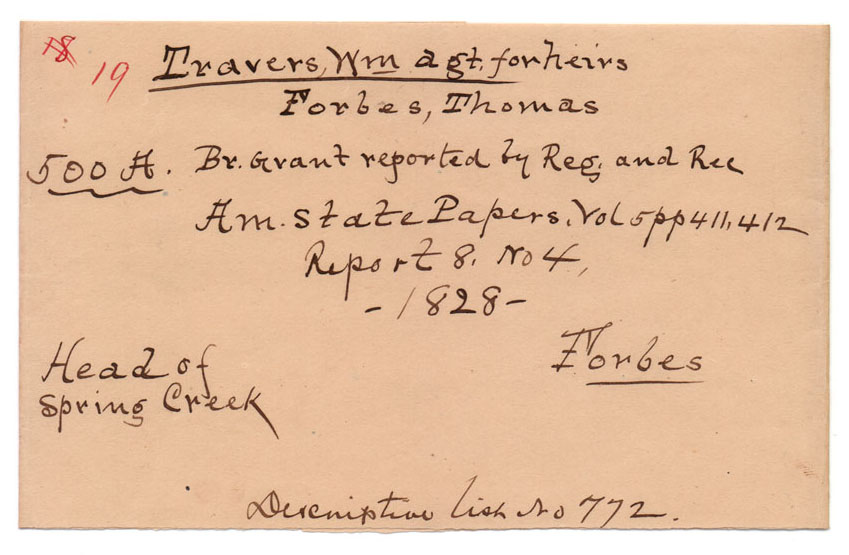 18
19 Travers, Wm agt. for heirs
Forbes, Thomas
500 A. Br. Grant reported by Reg. and Rec
Am. State Papers. Vol 5 pp 411, 412
Report 8. No 4,
- 1828 -
Forbes
Head of
Spring Creek
Descriptive list No 772.